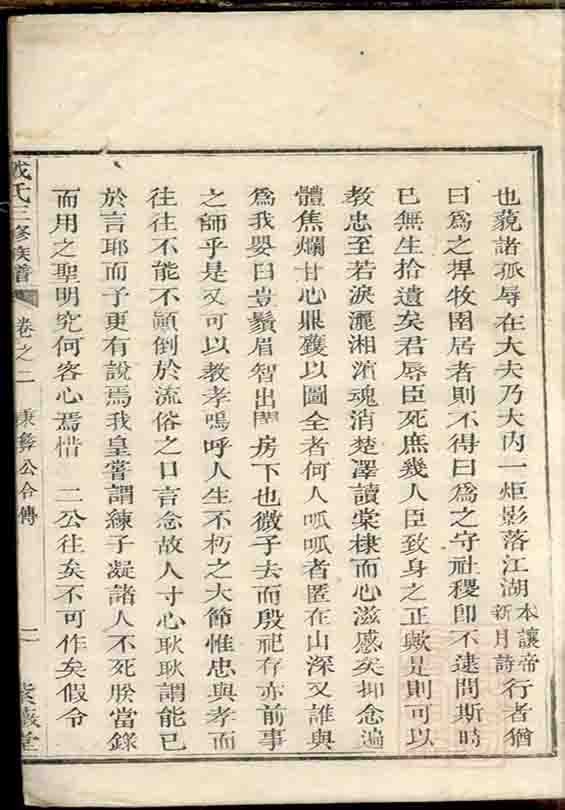 也藐諸孤辱在大夫乃大內一炬影落江湖本讓帝新月詩行者猶
曰爲之捍牧圉居者則不得曰爲之守社稷卽不遑問斯時
已無生拾遺矣君辱臣死庶幾人臣致身之正歟是則可以
教忠至若淚灑湘濆魂消楚澤讀棠棣而心滋感矣抑念遍
體焦爛甘心鼎鑊以圖全者何人呱呱者匿在山深又誰與
爲我嬰曰豈鬚眉智出閨房下也微子去而殷祀存亦前事
之師乎是又可以教孝嗚呼人生不朽之大節惟忠與孝而
往往不能不顚倒於流俗之口言念故人寸心耿耿謂能已
於言耶而予更有說焉我皇嘗謂練子凝諸人不死朕當錄
而用之聖明究何容心焉惜 二公往矣不可作矣假令
氏三修族譜 卷之二 彝公合傳 二 紫巖堂